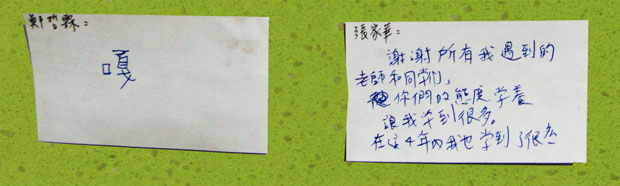 鄭哲霖:
嘎
張家華:
謝謝所有我遇到的
老師和同学们,
你們的態度、学養
讓我学到很多。
在這4年內我也学到了很多